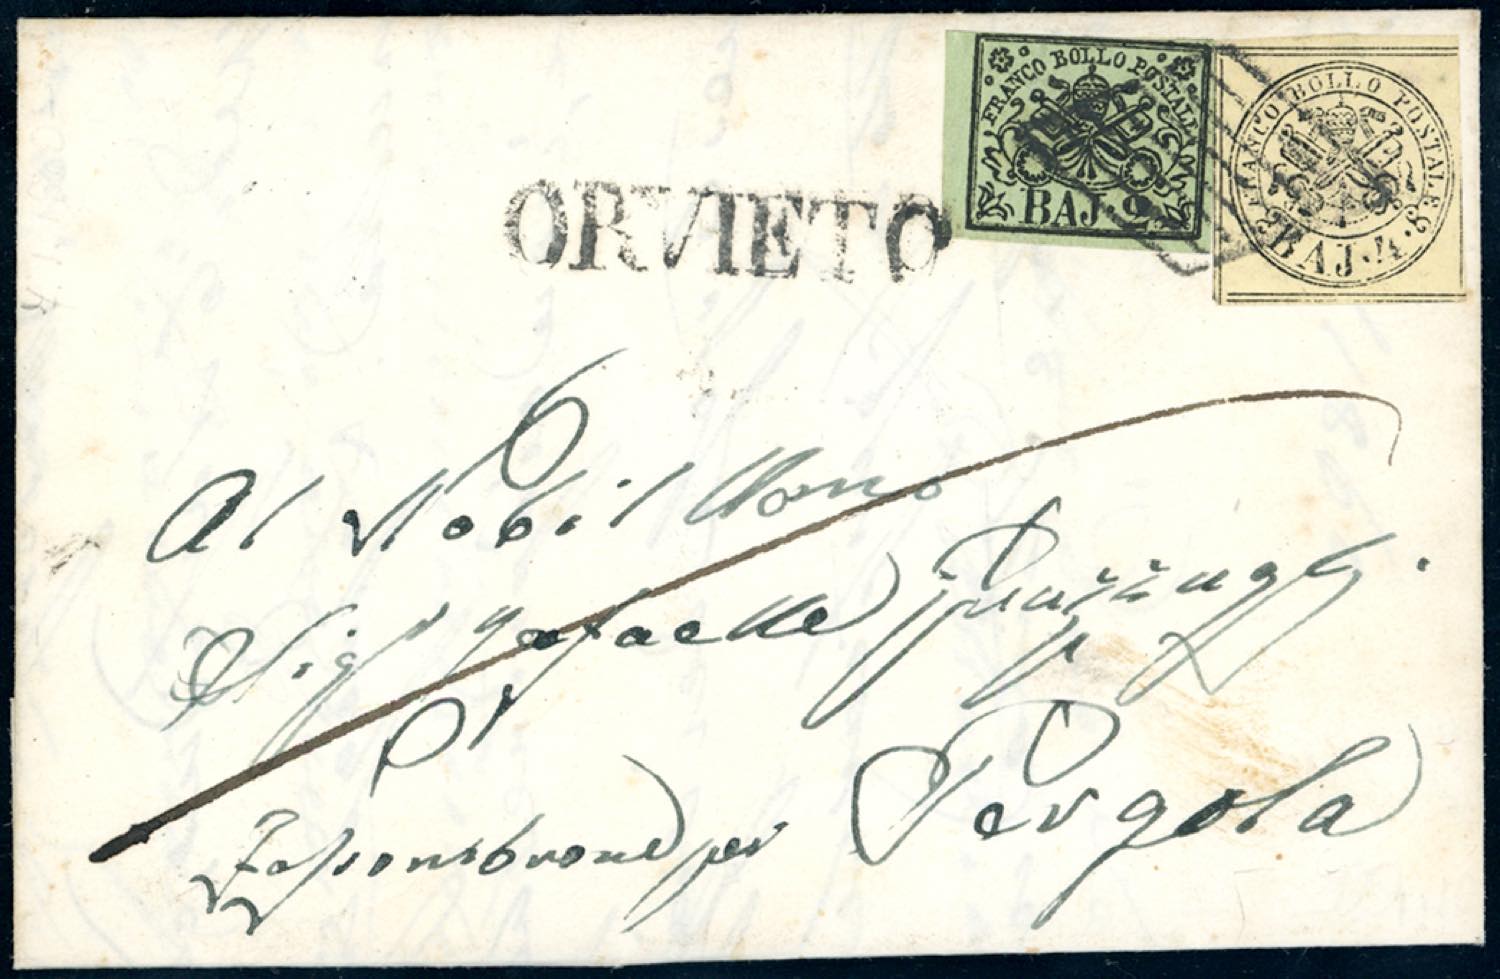 FRANCO BOLLO POSTALE
BAJ 2
FRANCO BOLLO POSTALE
BAJ. 4.
ORVIETO
Al Nobil Uomo
Sig.r Raffaelle
Di
Fossombrone per Pergola